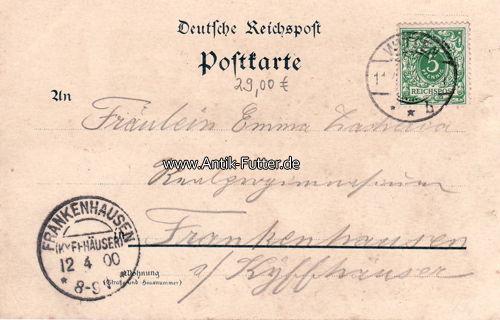 Deutsche Reichspost
Postkarte
29,00 €
5
PFENNIG
REICHSPOST
b
An
Fräulein Emma
www.Antik-Futter.de
Realprogymnasium
in Frankenhausen
a/Kyffhäuser
Wohnung
(Straße und Hausnummer)
FRANKENHAUSEN
(KYFFHÄUSER)
12 4 00
* 8-9 V *